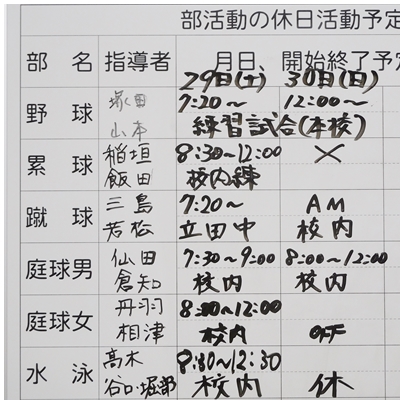 部活動の休日活動予定
部 名 指導者 月日、開始終了予定
29日(土) 30日(日)
野 球 塚田 7:20〜 12:00〜
山本 練習試合(本校)
累 球 稲垣 8:30〜12:00 ×
飯田 校内練
蹴 球 三島 7:20〜 AM
若松 立田中 校内
庭球男 仙田 7:30〜9:00 8:00〜12:00
倉知 校内 校内
庭球女 丹羽 8:00〜12:00
相津 校内 OFF
水 泳 高木 8:30〜12:30
谷口・堀部 校内 休